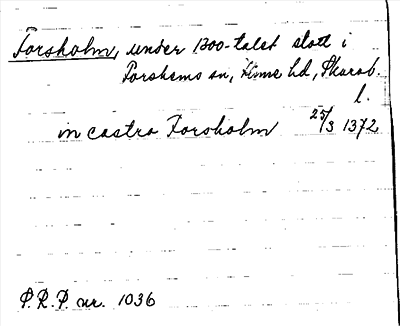 Forsholm, under 1300-talet slott i
Forshems sn, Kinne hd, Skarab.
l.
in castro Forsholm 25/3 1372
P.R.P nr. 1036